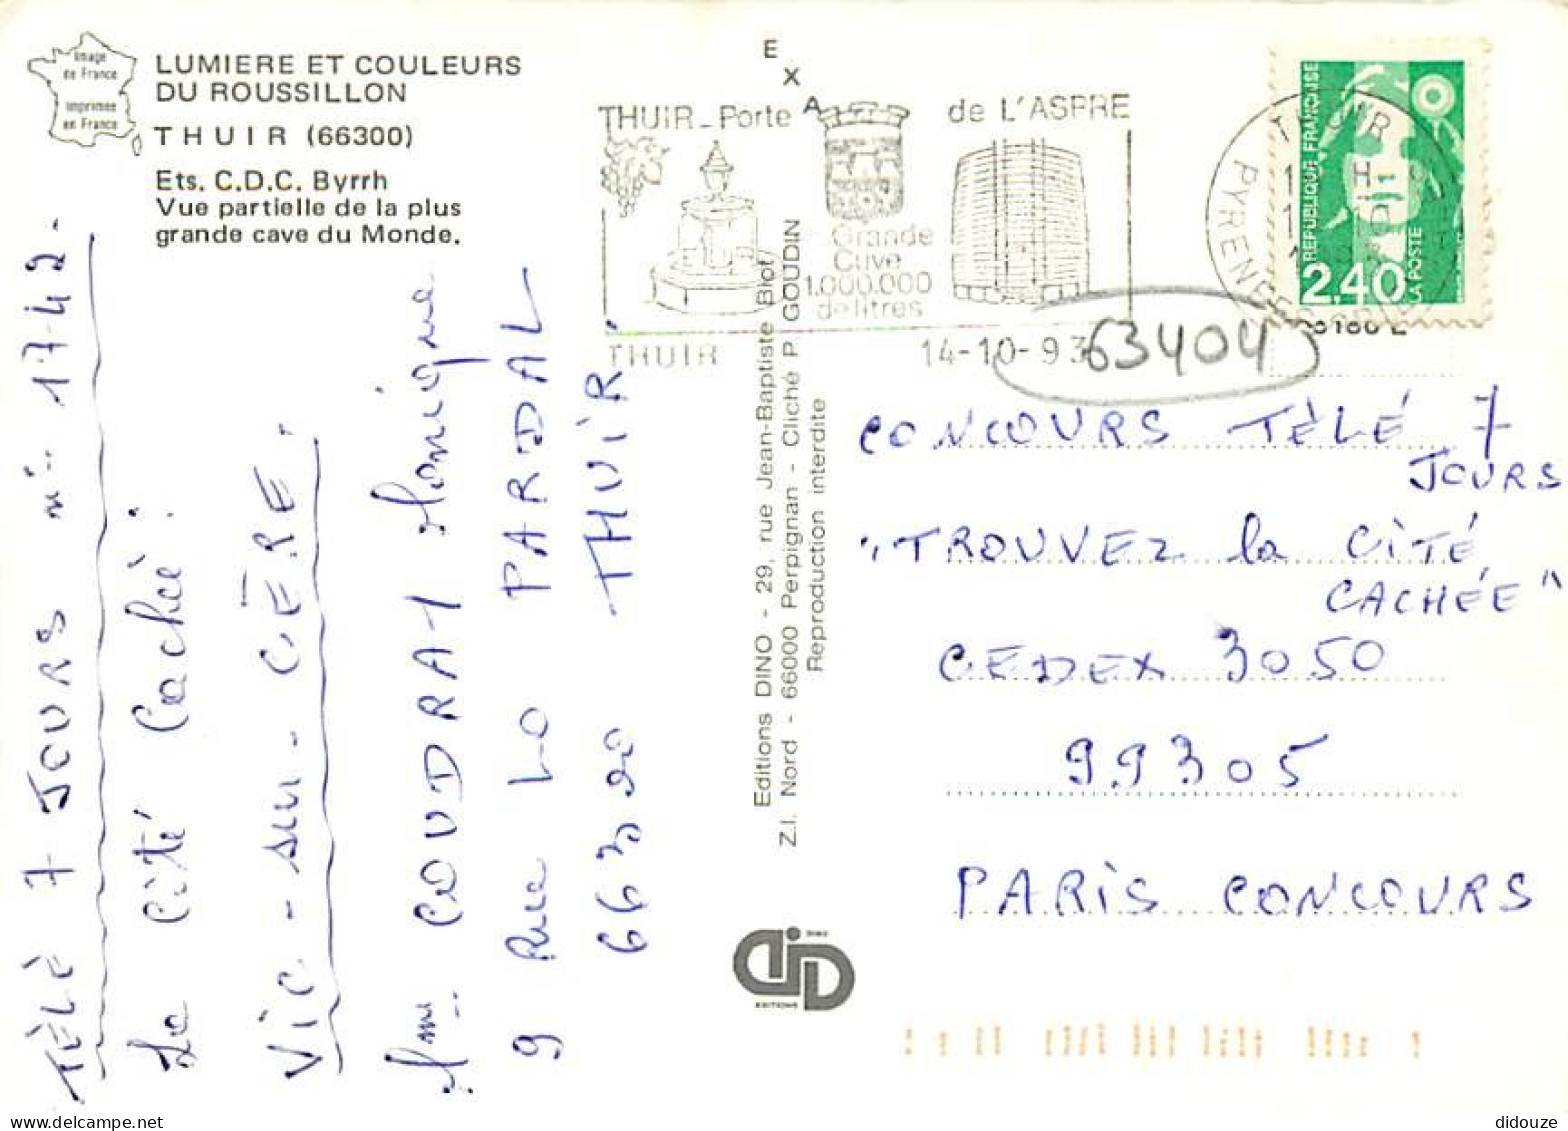 Image
de France
imprimée
en France
LUMIERE ET COULEURS
DU ROUSSILLON
THUIR (66300)
Ets. C.D.C. Byrrh
Vue partielle de la plus
grande cave du Monde.
TÈLÈ 7 JOURS n° 1742.
La Cité Cachée:
VIC-sur-CÈRE.
Mme COUDRAY Monique
9 Rue LO PARDAL
66300 THUIR.
EXA
Editions DINO - 29, rue Jean-Baptiste Biot
Z.I. Nord - 66000 Perpignan - Cliché P. GOUDIN
Reproduction interdite
DINO
EDITIONS
THUIR_Porte de L'ASPRE
Grande
Cuve
1.000.000
de litres
THUIR 14-10-93
THUIR
PYRENEES
REPUBLIQUE FRANÇAISE
2,40
LA POSTE
63404
CONCOURS TÈLÉ 7
JOURS
"TROUVEZ la CITÉ
CACHÉE"
CEDEX 3050
99305
PARIS CONCOURS
didouze